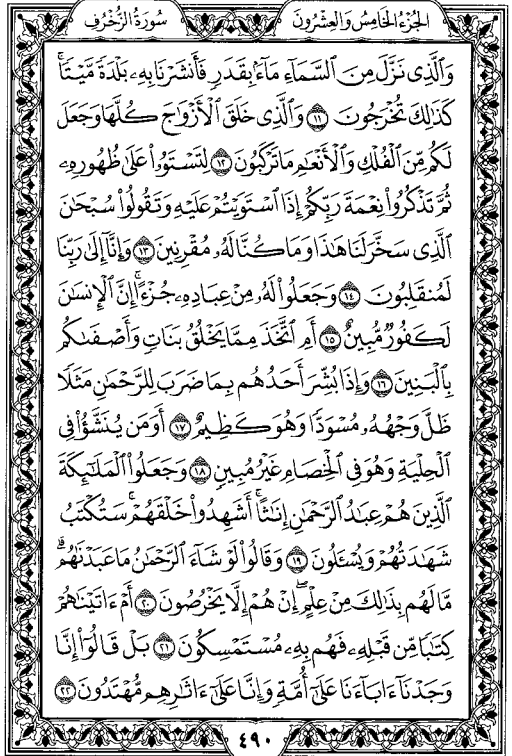 سُورَةُ الزُّخْرُفِ
الجُزْءُ الخَامِسُ وَالعِشْرُونَ
وَالَّذِي نَزَّلَ مِنَ السَّمَاءِ مَاءً بِقَدَرٍ فَأَنشَرْنَا بِهِ بَلْدَةً مَّيْتًا ۚ
كَذَٰلِكَ تُخْرَجُونَ ١١ وَالَّذِي خَلَقَ الْأَزْوَاجَ كُلَّهَا وَجَعَلَ
لَكُم مِّنَ الْفُلْكِ وَالْأَنْعَامِ مَا تَرْكَبُونَ ١٢ لِتَسْتَوُوا عَلَىٰ ظُهُورِهِ
ثُمَّ تَذْكُرُوا نِعْمَةَ رَبِّكُمْ إِذَا اسْتَوَيْتُمْ عَلَيْهِ وَتَقُولُوا سُبْحَانَ
الَّذِي سَخَّرَ لَنَا هَٰذَا وَمَا كُنَّا لَهُ مُقْرِنِينَ ١٣ وَإِنَّا إِلَىٰ رَبِّنَا
لَمُنقَلِبُونَ ١٤ وَجَعَلُوا لَهُ مِنْ عِبَادِهِ جُزْءًا ۚ إِنَّ الْإِنسَانَ
لَكَفُورٌ مُّبِينٌ ١٥ أَمِ اتَّخَذَ مِمَّا يَخْلُقُ بَنَاتٍ وَأَصْفَاكُم
بِالْبَنِينَ ١٦ وَإِذَا بُشِّرَ أَحَدُهُم بِمَا ضَرَبَ لِلرَّحْمَٰنِ مَثَلًا
ظَلَّ وَجْهُهُ مُسْوَدًّا وَهُوَ كَظِيمٌ ١٧ أَوَمَن يُنَشَّأُ فِي
الْحِلْيَةِ وَهُوَ فِي الْخِصَامِ غَيْرُ مُبِينٍ ١٨ وَجَعَلُوا الْمَلَائِكَةَ
الَّذِينَ هُمْ عِبَادُ الرَّحْمَٰنِ إِنَاثًا ۚ أَشَهِدُوا خَلْقَهُمْ ۚ سَتُكْتَبُ
شَهَادَتُهُمْ وَيُسْأَلُونَ ١٩ وَقَالُوا لَوْ شَاءَ الرَّحْمَٰنُ مَا عَبَدْنَاهُم ۗ
مَّا لَهُم بِذَٰلِكَ مِنْ عِلْمٍ ۖ إِنْ هُمْ إِلَّا يَخْرُصُونَ ٢٠ أَمْ آتَيْنَاهُمْ
كِتَابًا مِّن قَبْلِهِ فَهُم بِهِ مُسْتَمْسِكُونَ ٢١ بَلْ قَالُوا إِنَّا
وَجَدْنَا آبَاءَنَا عَلَىٰ أُمَّةٍ وَإِنَّا عَلَىٰ آثَارِهِم مُّهْتَدُونَ ٢٢
٤٩٠